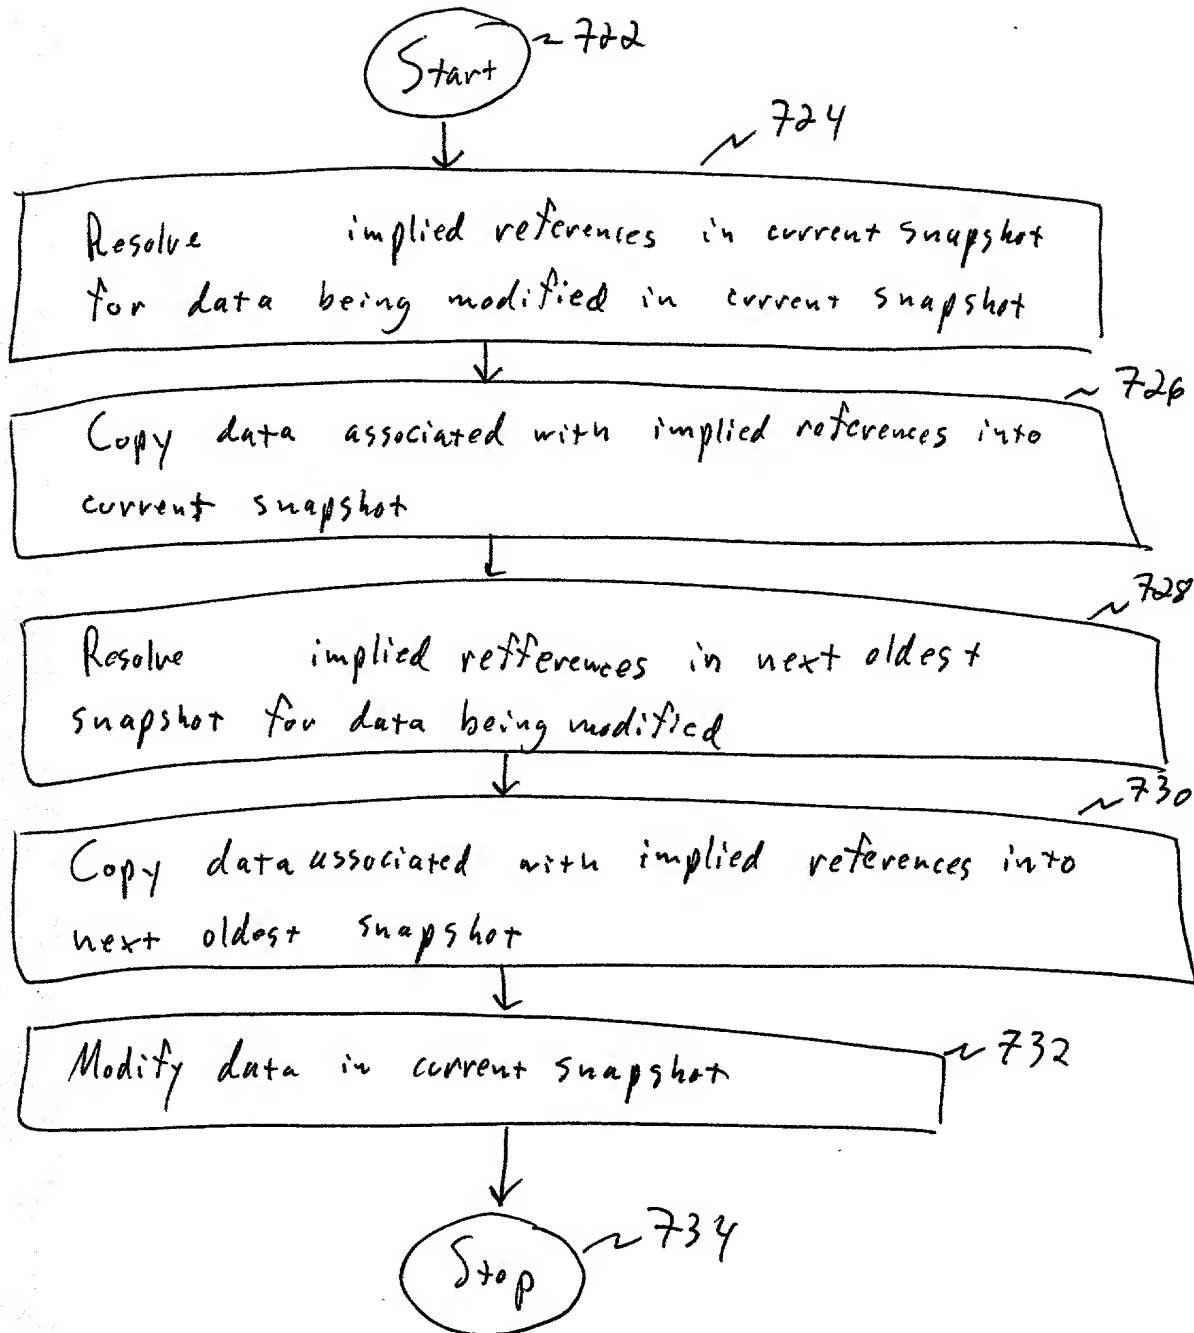 Start 722
724
Resolve implied references in current snapshot
for data being modified in current snapshot
726
Copy data associated with implied references into
current snapshot
728
Resolve implied refferences in next oldest
snapshot for data being modified
730
Copy data associated with implied references into
next oldest snapshot
Modify data in current snapshot 732
Stop 734